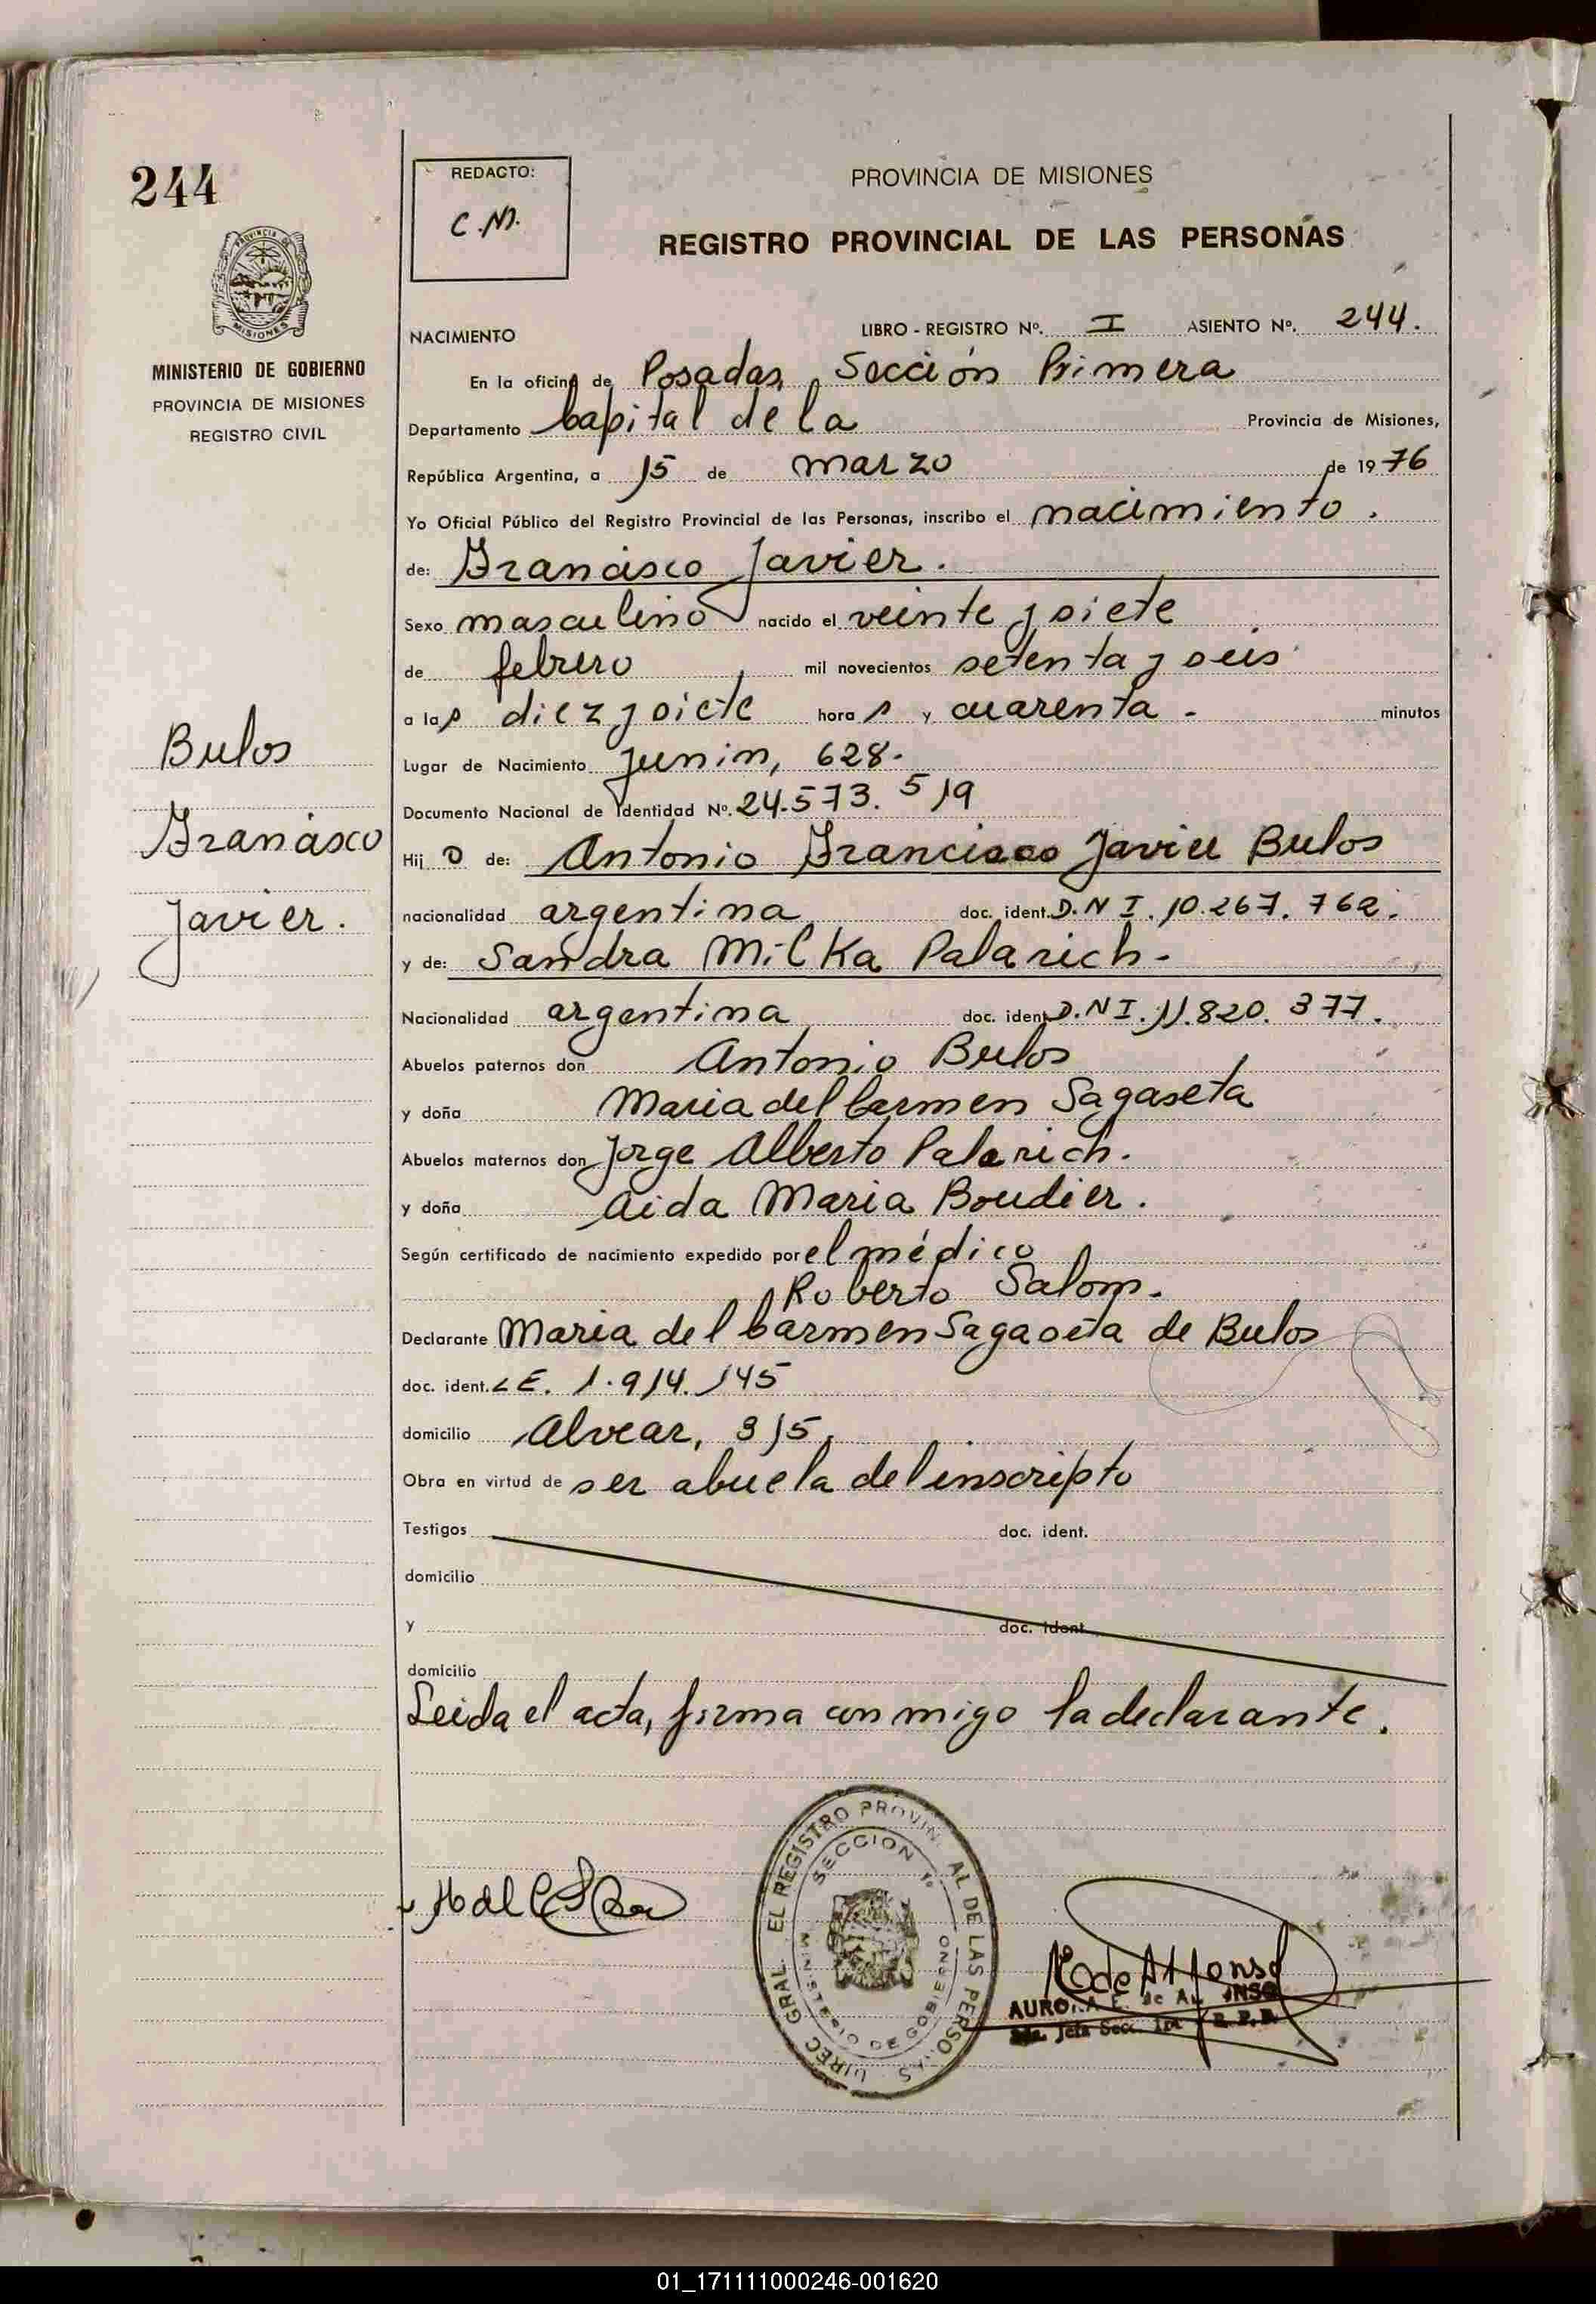 244
REDACTO:
C.M.
PROVINCIA DE MISIONES
REGISTRO PROVINCIAL DE LAS PERSONAS
PROVINCIA DE
MISIONES
MINISTERIO DE GOBIERNO
PROVINCIA DE MISIONES
REGISTRO CIVIL
NACIMIENTO LIBRO - REGISTRO Nº. I ASIENTO Nº. 244.
En la oficina de Posadas, Sección Primera
Departamento Capital de la Provincia de Misiones,
República Argentina, a 15 de marzo de 1976
Yo Oficial Público del Registro Provincial de las Personas, inscribo el nacimiento.
de: Francisco Javier.
Sexo masculino nacido el veinte y siete
de febrero mil novecientos setenta y seis
a las diez y siete horas y cuarenta - minutos
Lugar de Nacimiento Junin, 628.
Documento Nacional de Identidad Nº. 24.573.519
Hijo de: Antonio Francisco Javier Bulos
nacionalidad argentina doc. ident. D.N I. 10.267.762.
y de: Sandra Milka Palarich.
Nacionalidad argentina doc. ident. D.N I. 11.820.377.
Abuelos paternos don Antonio Bulos
y doña Maria del Carmen Sagaseta
Abuelos maternos don Jorge Alberto Palarich.
y doña Aida Maria Boudier.
Según certificado de nacimiento expedido por el médico
Roberto Salom.
Declarante Maria del Carmen Sagaseta de Bulos
doc. ident. L E. 1.914.145
domicilio Alvear, 315.
Obra en virtud de ser abuela del inscripto
Testigos doc. ident.
domicilio
y doc. ident.
domicilio
Leida el acta, firma conmigo la declarante.
Bulos
Francisco
Javier.
DIREC. GRAL. EL REGISTRO PROVIN AL DE LAS PERSO
SECCION 1º
MINISTERIO DE GOBIERNO
01_171111000246-001620